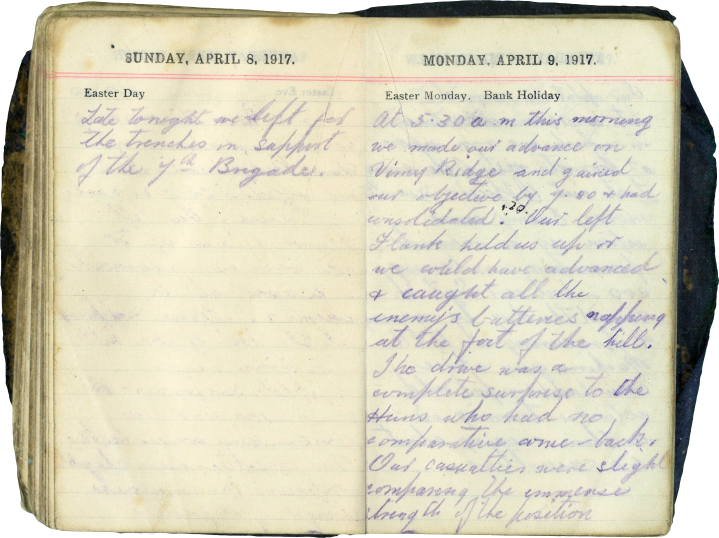 SUNDAY, APRIL 8, 1917.
Easter Day
Late tonight we left for
the trenches in support
of the 7th Brigade.
MONDAY, APRIL 9, 1917.
Easter Monday. Bank Holiday
At 5.30 a m this morning
we made our advance on
Vimy Ridge and gained
our objective by 7.00 & had
consolidated. Our left
Flank held us up or
we could have advanced
& caught all the
enemy's batteries napping
at the foot of the hill.
The drive was a
complete surprise to the
Huns who had no
comparative come-back.
Our casualties were slight
comparing the immense
strength of the position